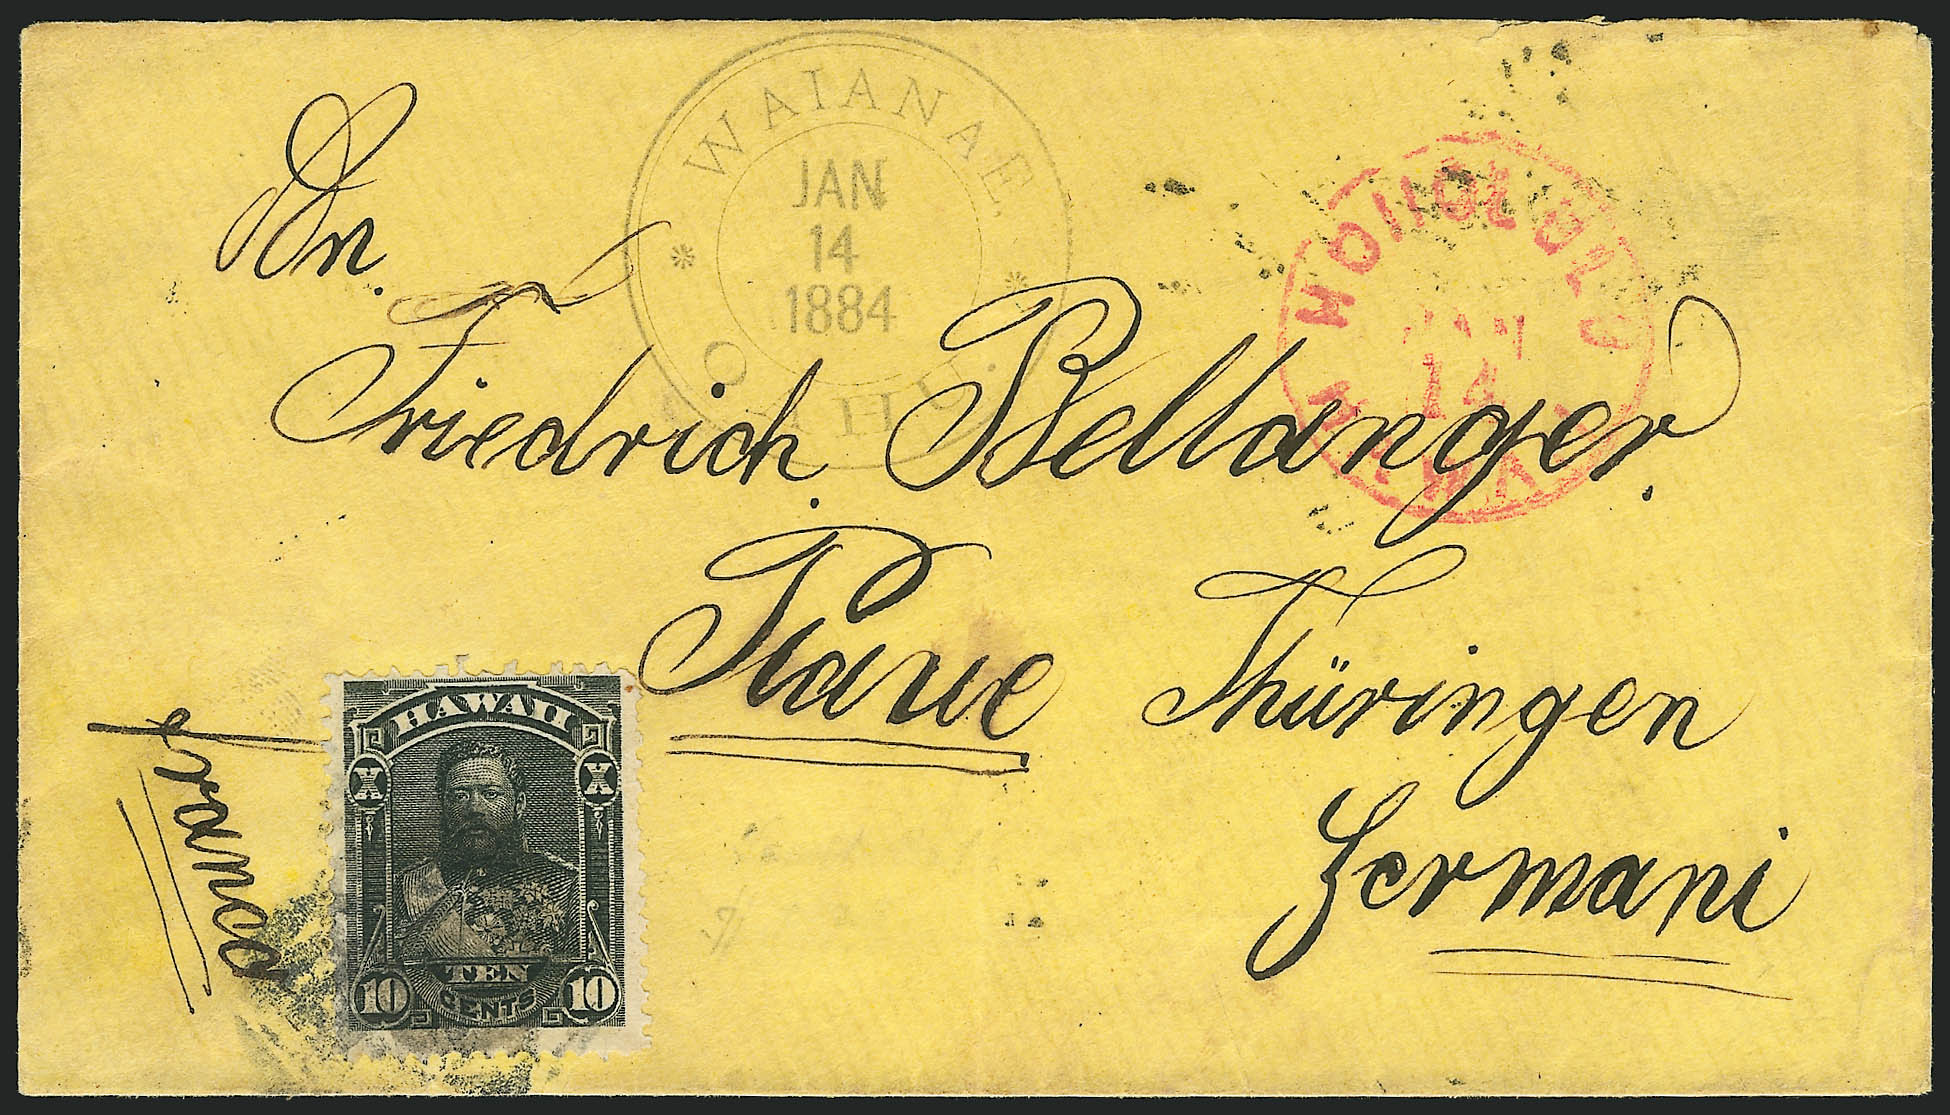 WAIANAE,
JAN
14
1884
OAHU.
HONOLULU
JAN
14
HAWAII
Friedrich Bellanger.
Plaue Thüringen
Germani
franco
HAWAII
X X
10 TEN 10
CENTS